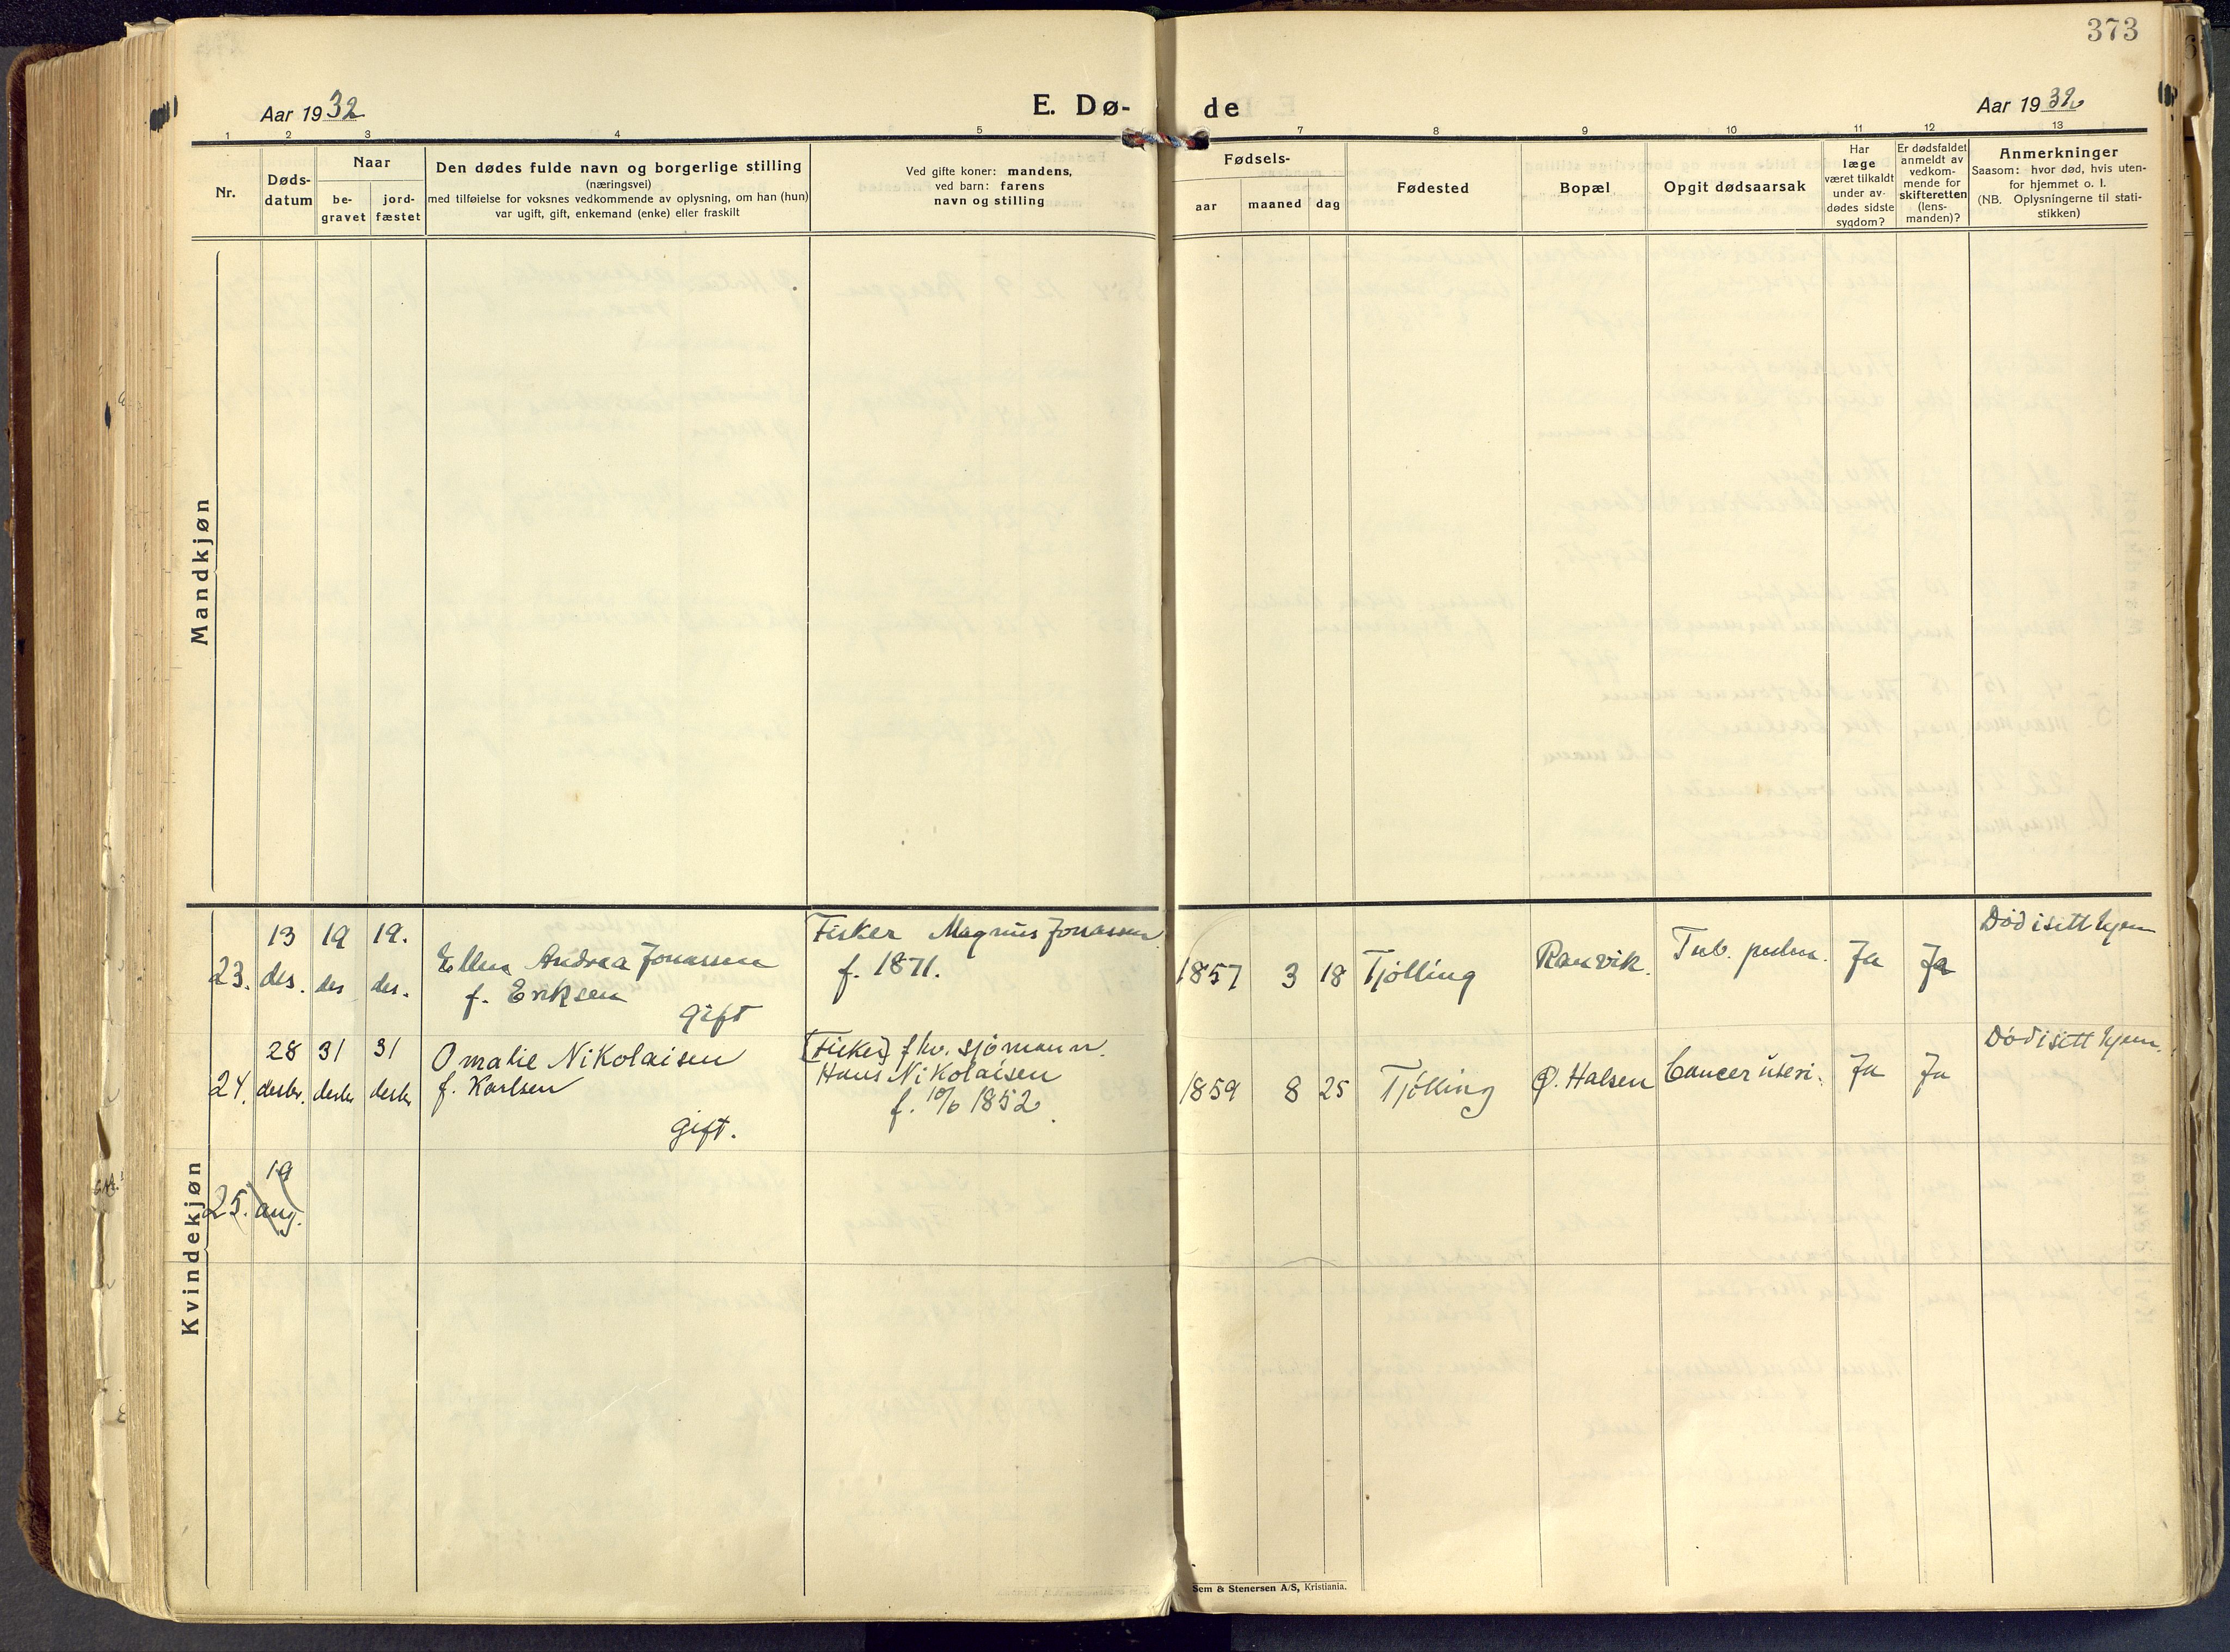 373
Aar 1932
E. Dø-
de
Aar 1932
1 2 3 4 5 7 8 9 10 11 12 13
Nr.
Døds-
datum
Naar
be-
gravet
jord-
fæstet
Den dødes fulde navn og borgerlige stilling
(næringsvei)
med tilføielse for voksnes vedkommende av oplysning, om han (hun)
var ugift, gift, enkemand (enke) eller fraskilt
Ved gifte koner: mandens,
ved barn: farens
navn og stilling
Fødsels-
aar maaned dag
Fødested
Bopæl
Opgit dødsaarsak
Har
læge
været tilkaldt
under av-
dødes sidste
sygdom?
Er dødsfaldet
anmeldt av
vedkom-
mende for
skifteretten
(lens-
manden)?
Anmerkninger
Saasom: hvor død, hvis uten-
for hjemmet o. l.
(NB. Oplysningerne til stati-
stikken)
Mandkjøn
Kvindekjøn
23.
13
des.
19
des
19.
des.
Ellen Andrea Jonassen
f. Eriksen
gift
Fisker Magnus Jonassen
f. 1871.
1857 3 18 Tjølling Ranvik. Tub. pulm. Ja Ja
Død i sitt hjem
24.
28
desbr.
31
desbr
31
desbr
Omalie Nikolaisen
f. Karlsen
gift.
[Fisker] fhv. sjömann.
Hans Nikolaisen
f. 10/6 1852.
1859 8 25 Tjølling Ø. Halsen Cancer uteri. Ja Ja
Død i sitt hjem.
25.
19
aug.
Sem & Stenersen A/S, Kristiania.